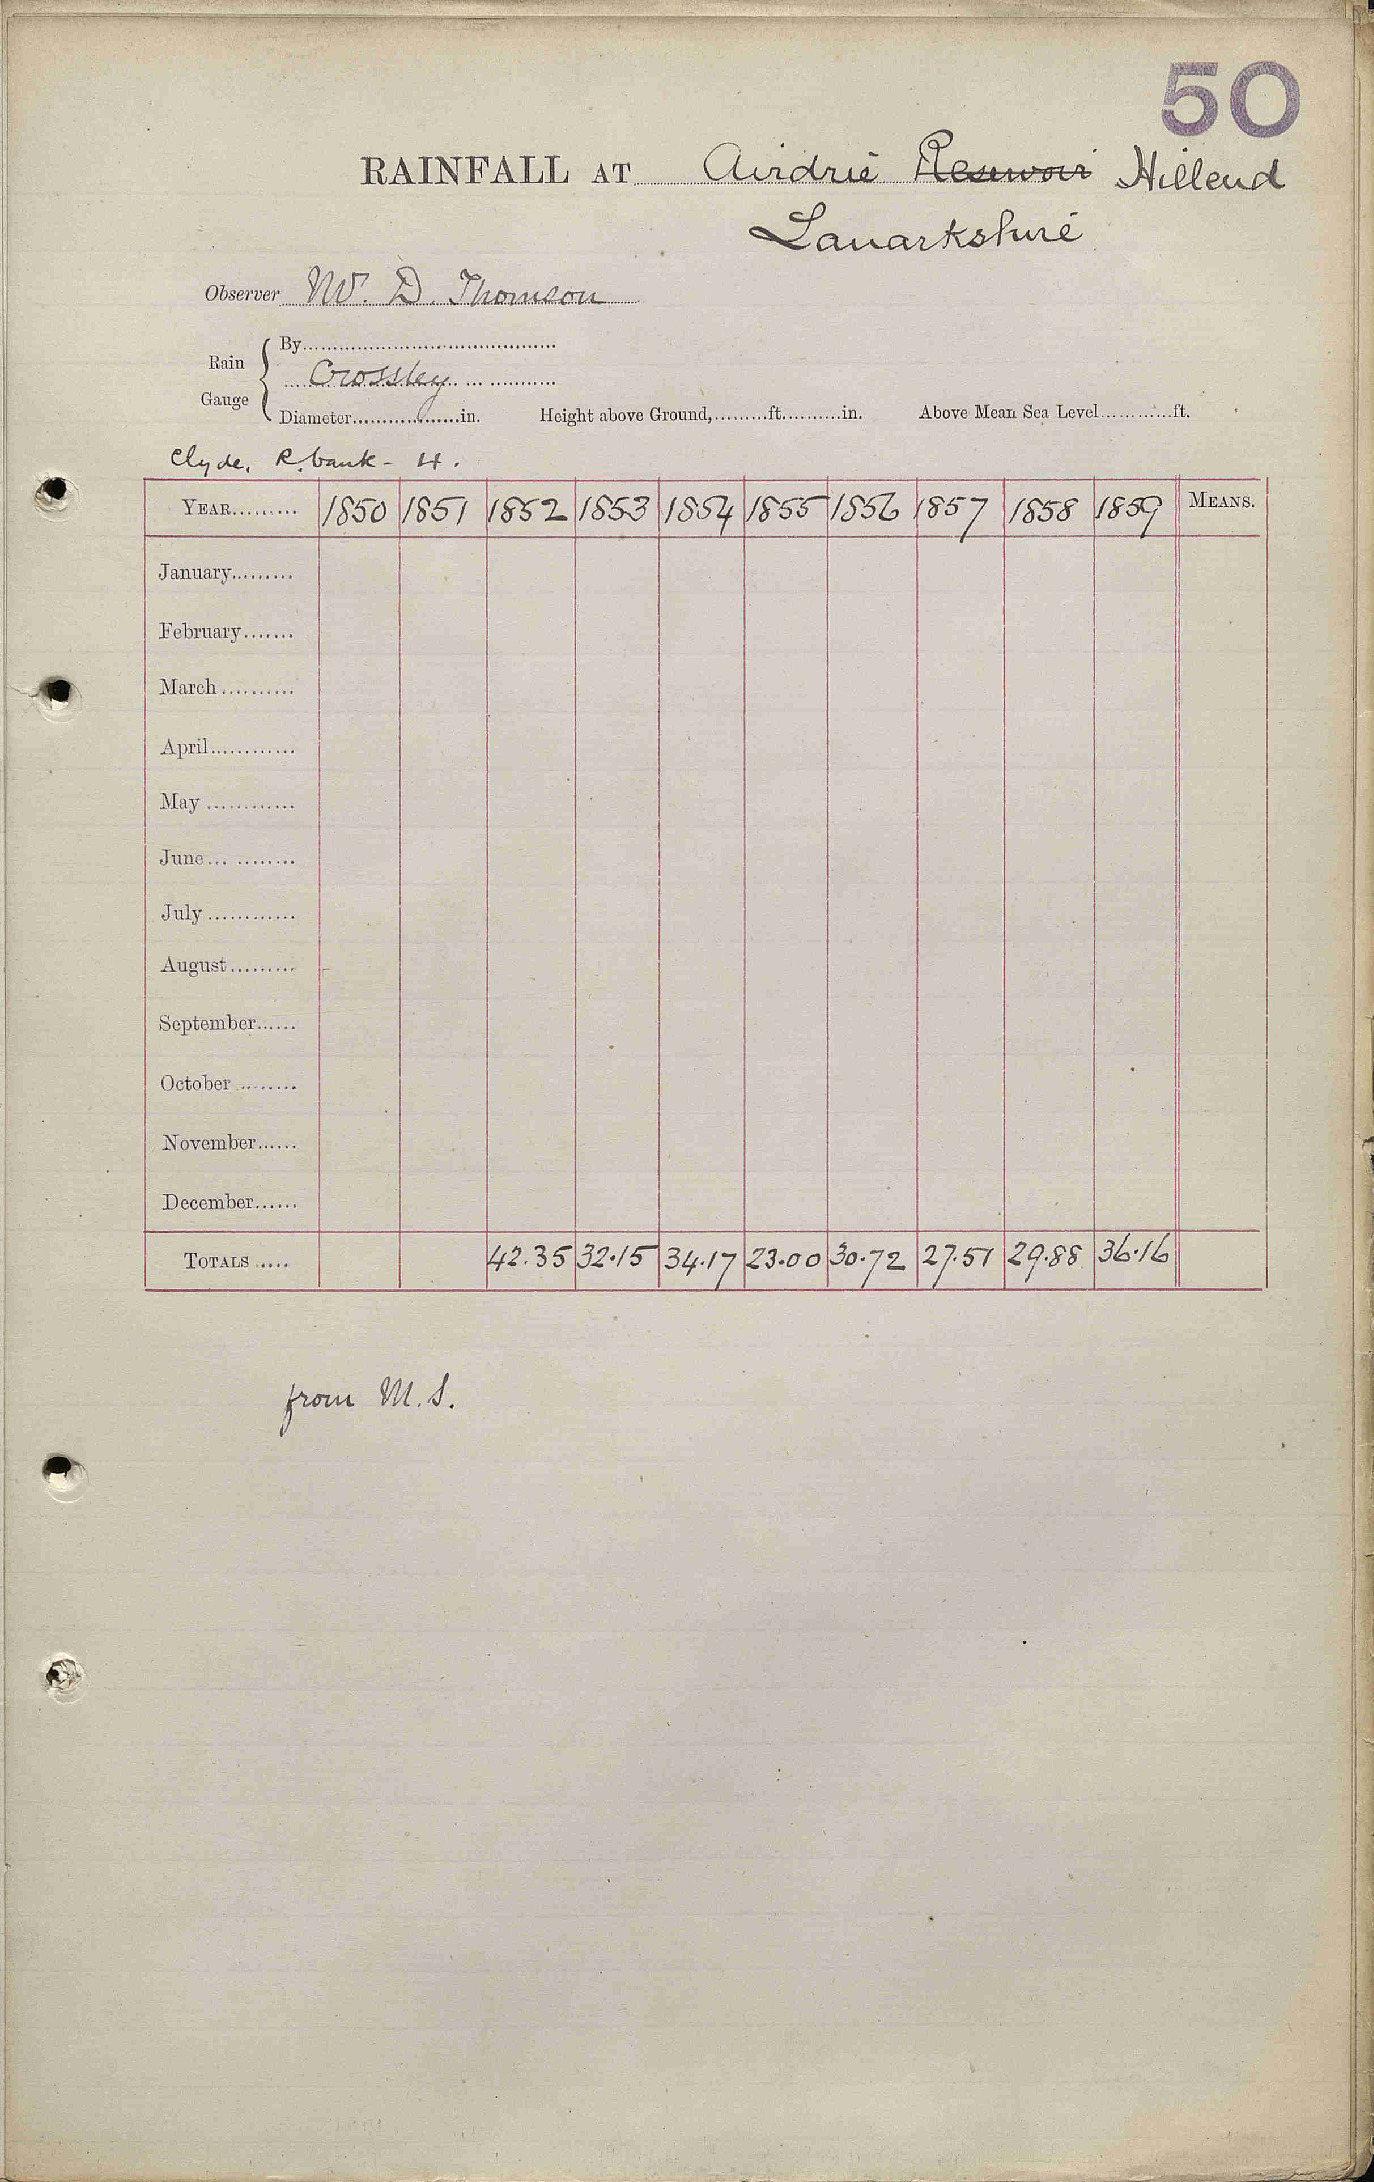 50
RAINFALL AT Airdrie ~~Reservoir~~ Hillend
Lanarkshire
Observer W. D. Thomson
Rain Gauge { By..........
Crossley
Diameter..........in. Height above Ground,.........ft..........in. Above Mean Sea Level............ft.
Clyde. R. bank - H.
YEAR......... 1850 1851 1852 1853 1854 1855 1856 1857 1858 1859 MEANS.
January.........
February.......
March..........
April............
May............
June...........
July............
August.........
September......
October.........
November......
December......
TOTALS..... 42.35 32.15 34.17 23.00 30.72 27.51 29.88 36.16
from M.S.